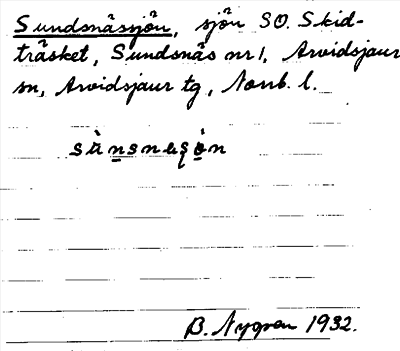 Sundsnässjön, sjön SO. Skid-
träsket, Sundsnäs nr 1, Arvidsjaur
sn, Arvidsjaur tg, Norrb. l.
B. Nygren 1932.